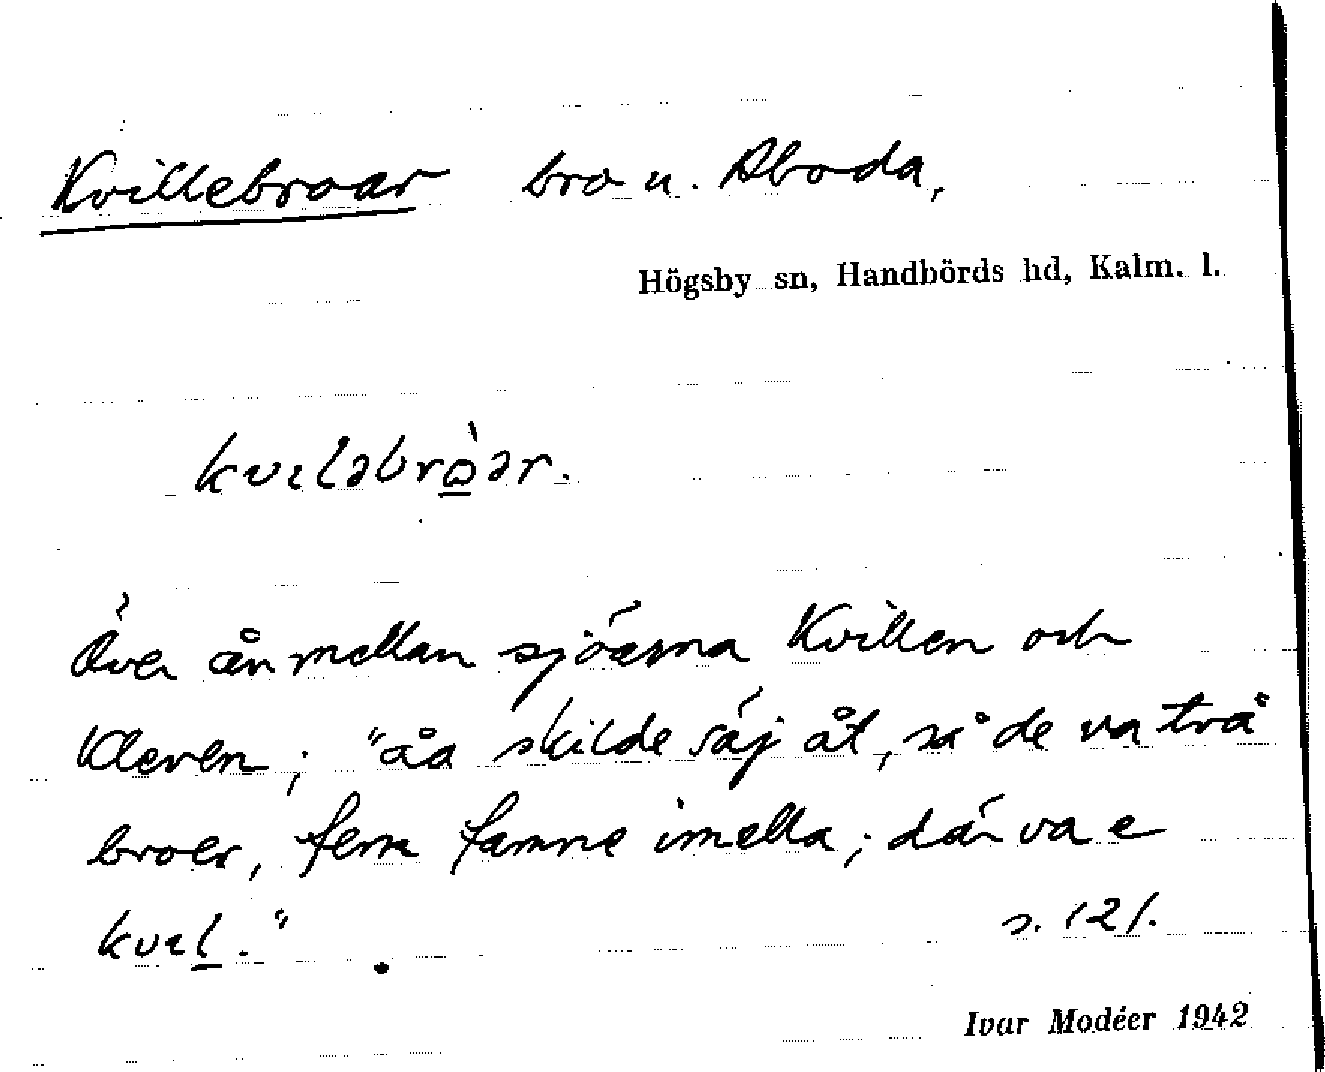 Kvillebroar bro u. Aboda,
Högsby sn, Handbörds hd, Kalm. l.
kvıləbrò̲ər.
Över ån mellan sjöarna Kvillen och
Kleven; "åa skilde säj åt, så de va två
broer, fem famne imella; där va e
kvıl̲."
s. 121.
Ivar Modéer 1942